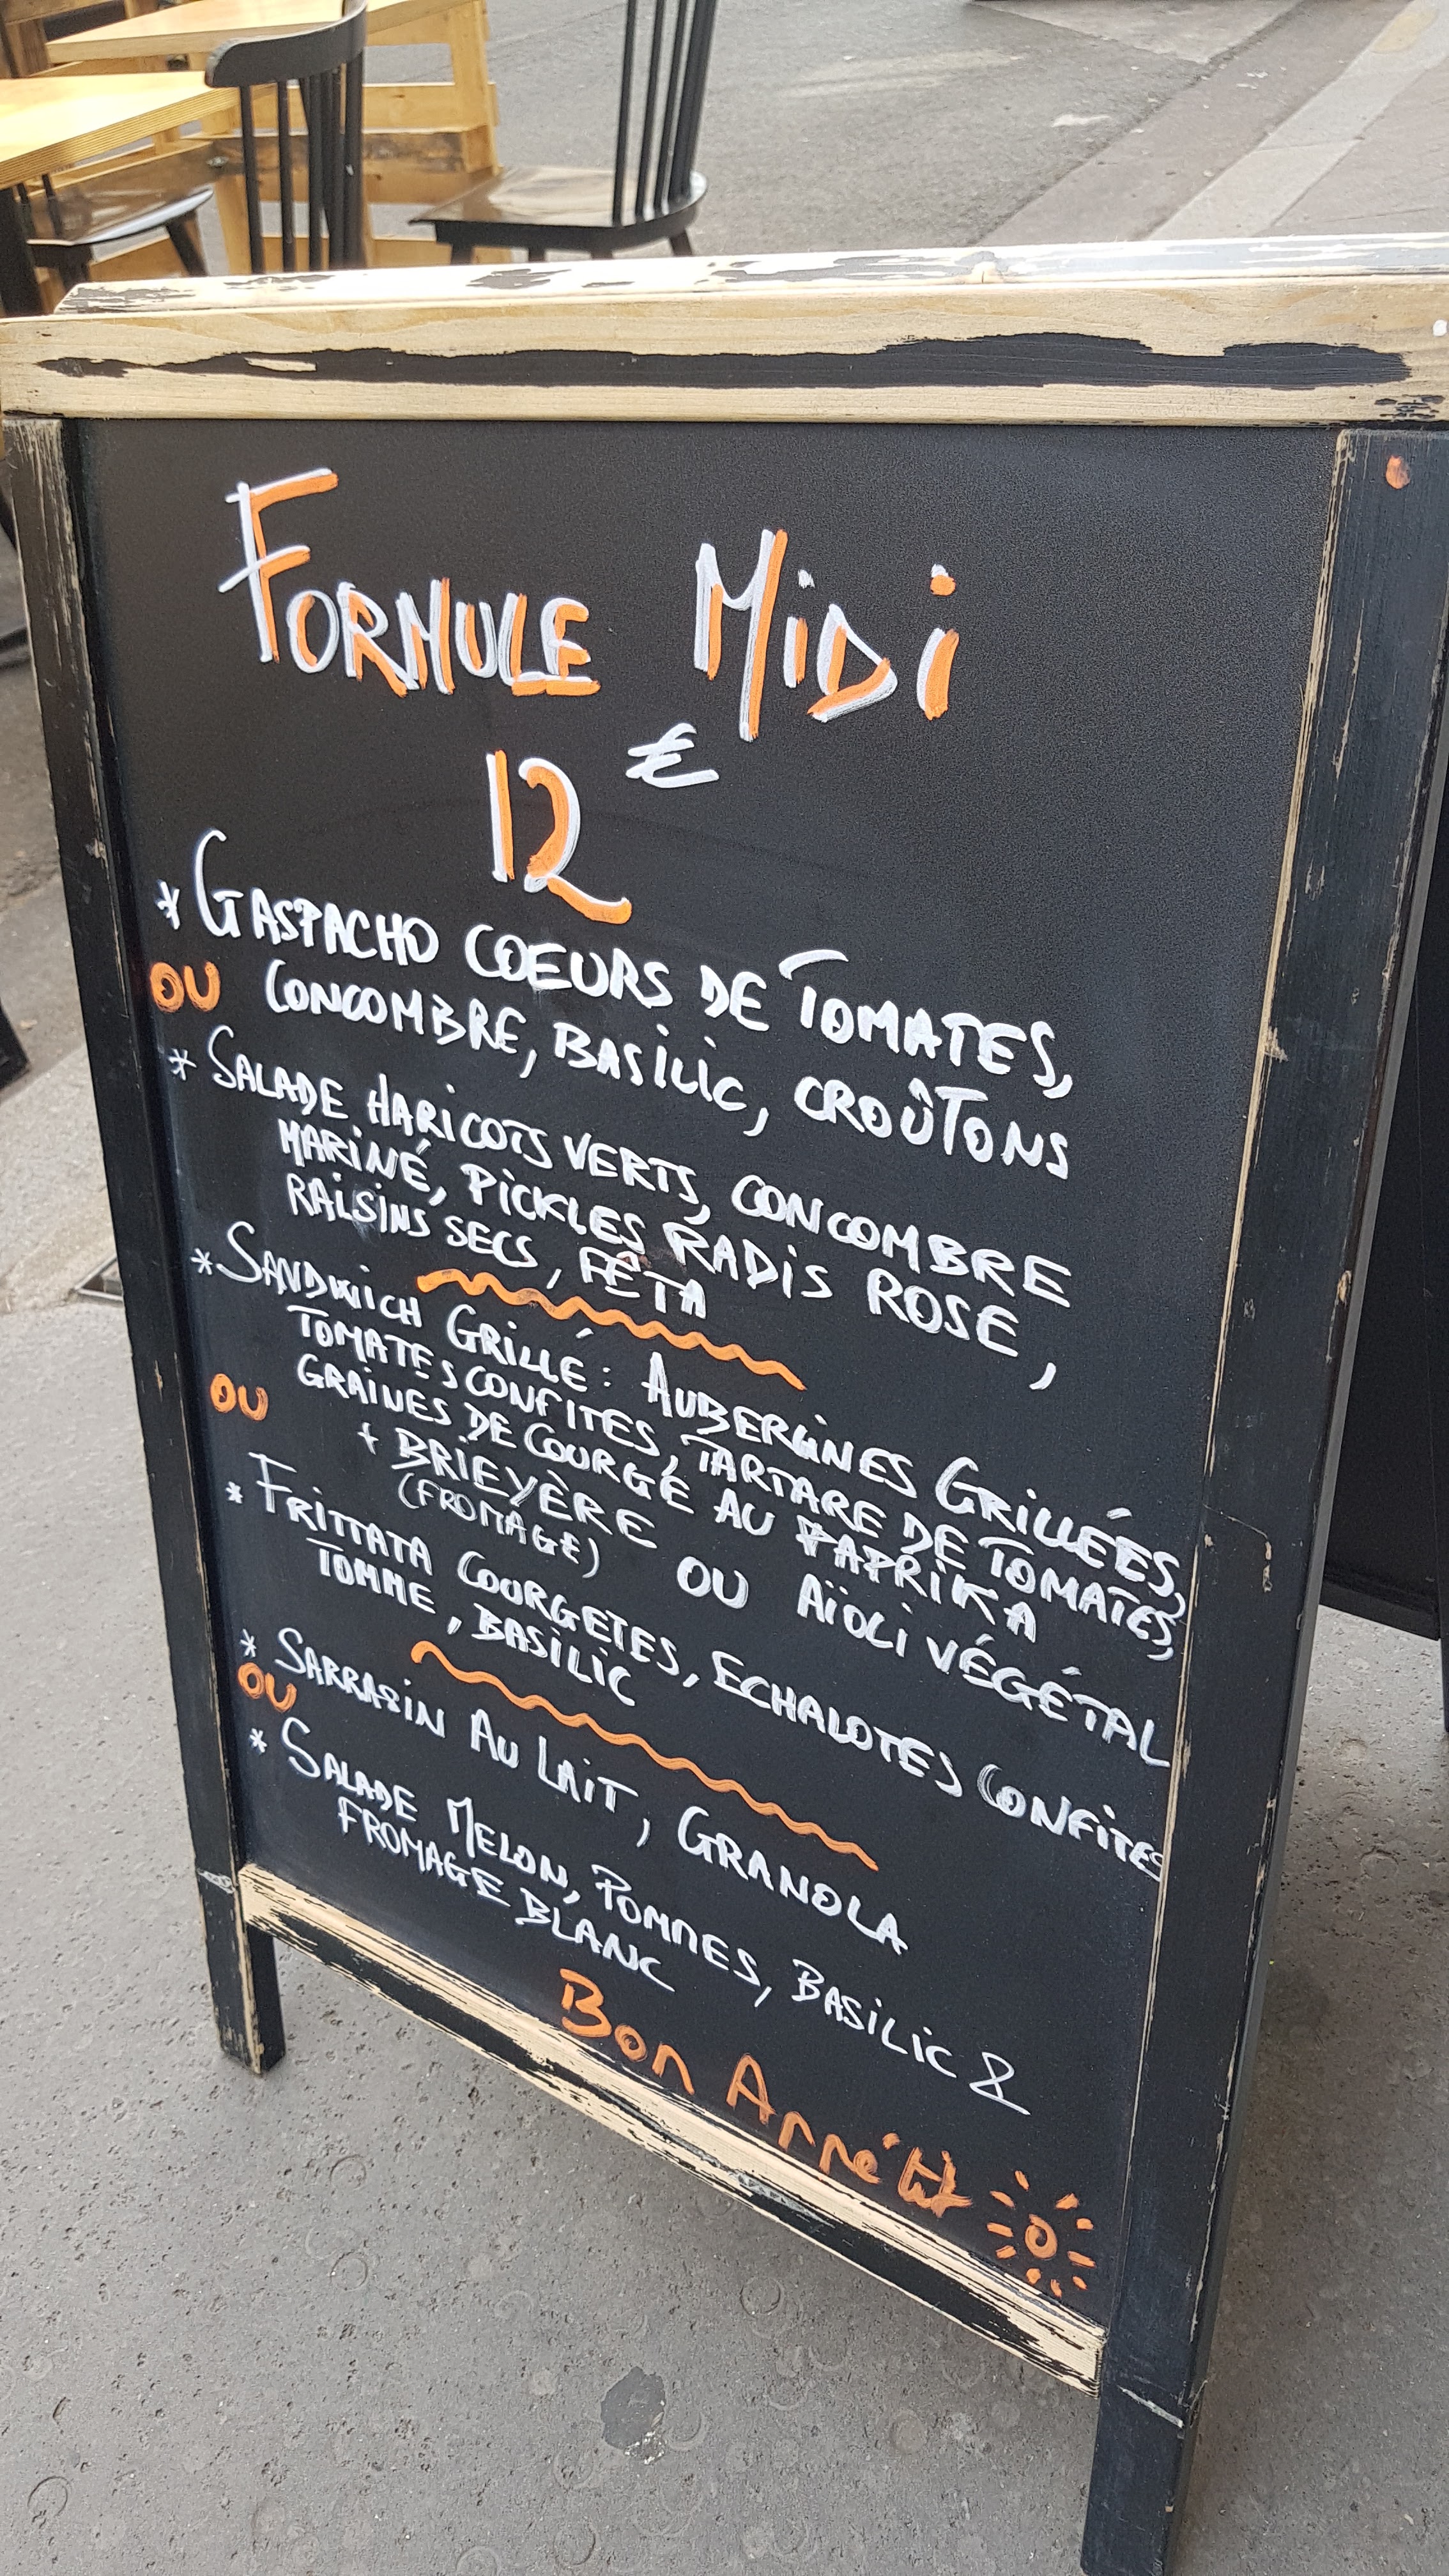 FORMULE MiDi
12 €
* GASPACHO COEURS DE TOMATES,
OU CONCOMBRE, BASILIC, CROÛTONS
* SALADE HARICOTS VERTS, CONCOMBRE
MARINÉ, PICKLES RADIS ROSE,
RAISINS SECS, FÊTA
* SANDWICH GRILLÉ : AUBERGINES GRILLÉES,
TOMATES CONFITES, TARTARE DE TOMATES,
OU GRAINES DE COURGE AU PAPRIKA
+ BRIEYÈRE OU AÏOLI VÉGÉTAL
(FROMAGE)
* FRITTATA COURGETES, ECHALOTES CONFITES
TOMME, BASILIC
* SARRASIN AU LAIT, GRANOLA
OU
* SALADE MELON, POMMES, BASILIC &
FROMAGE BLANC
Bon Appétit